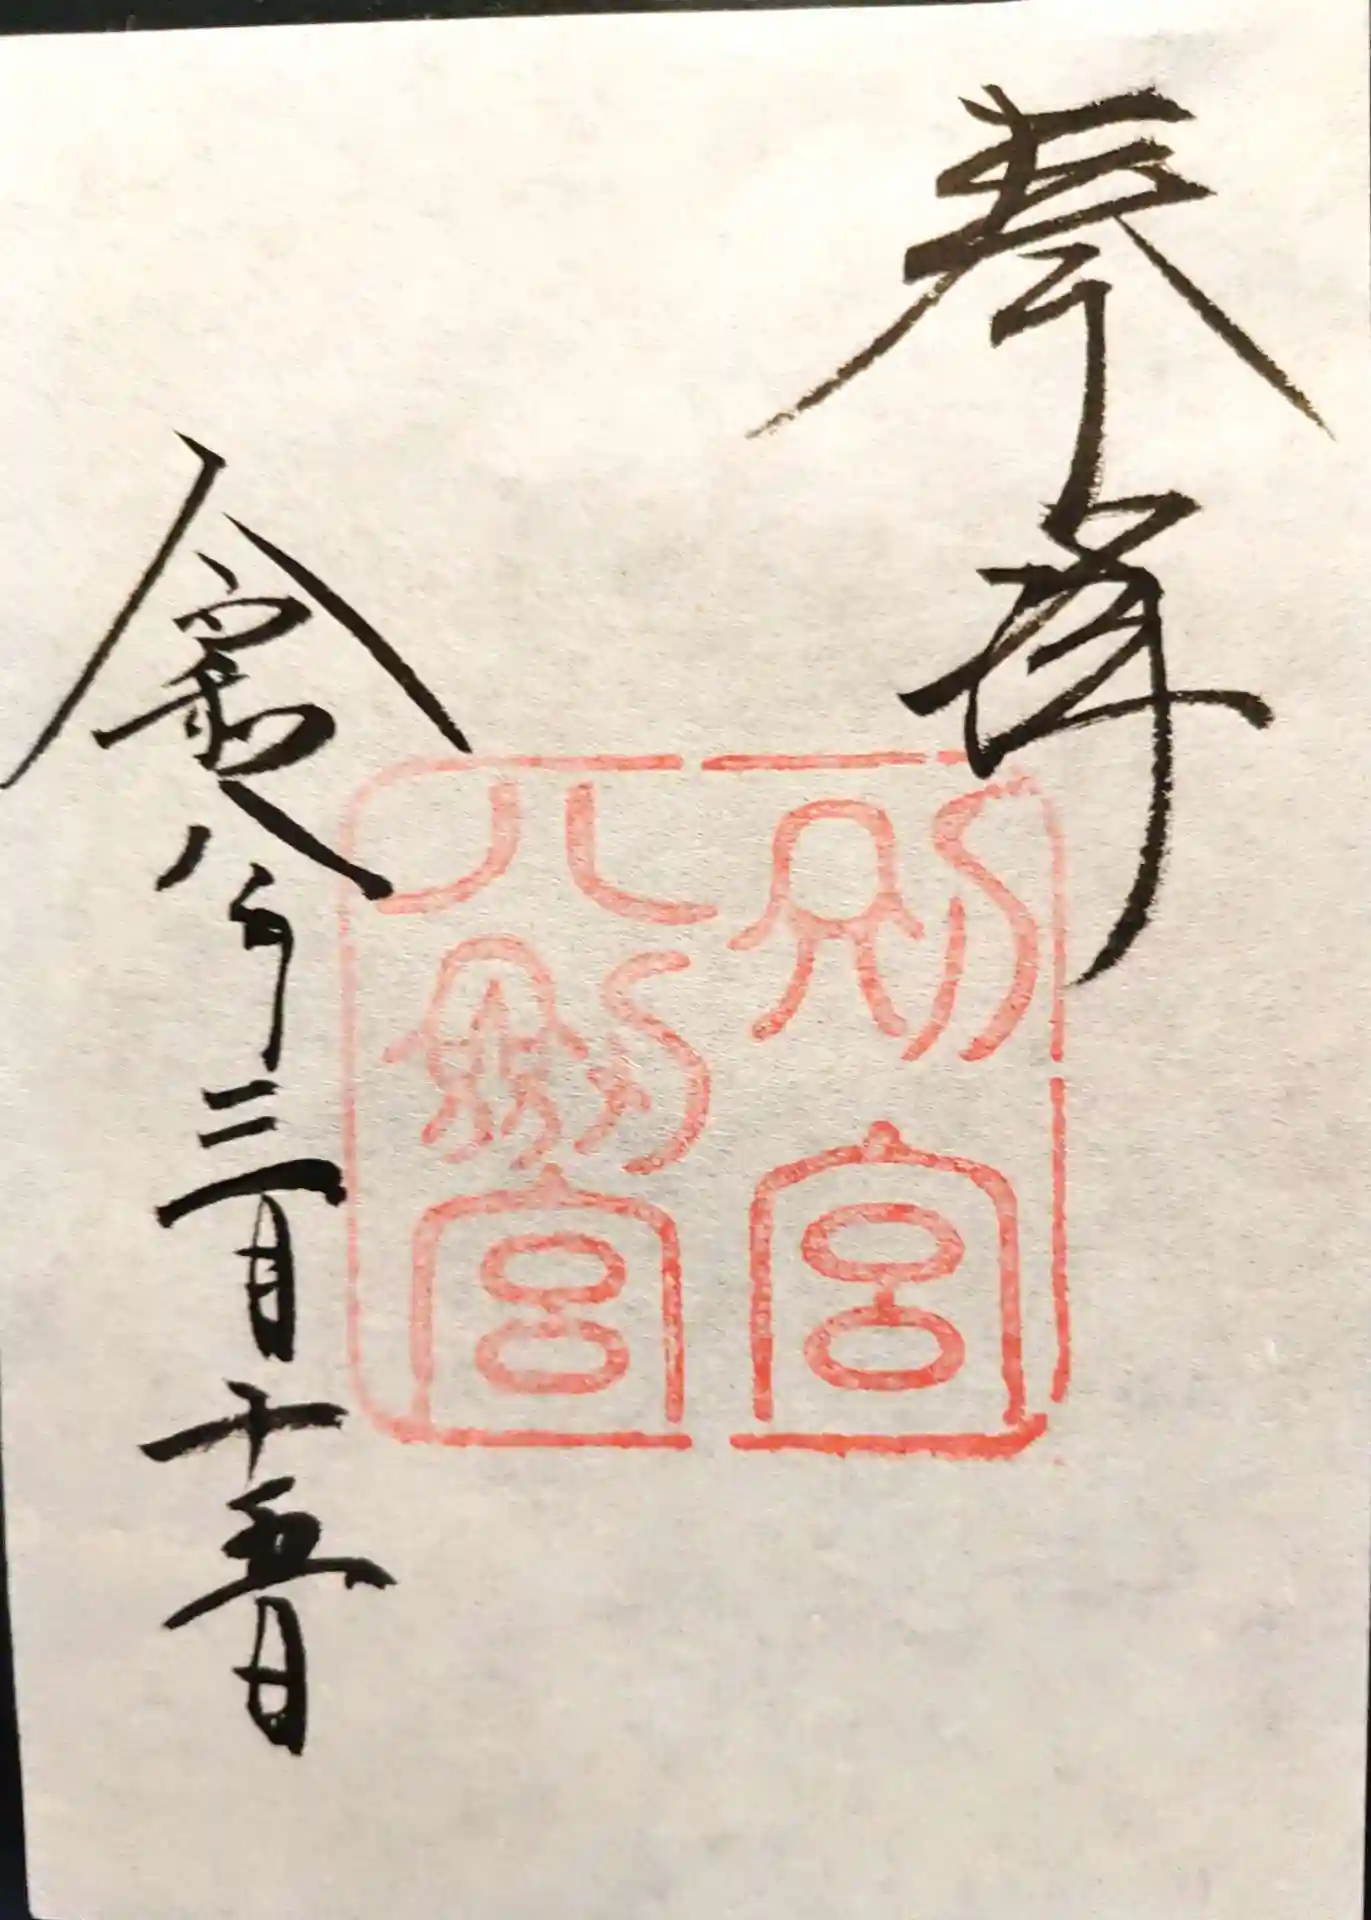 奉拝
別宮
八劔宮
令和八年三月十五日